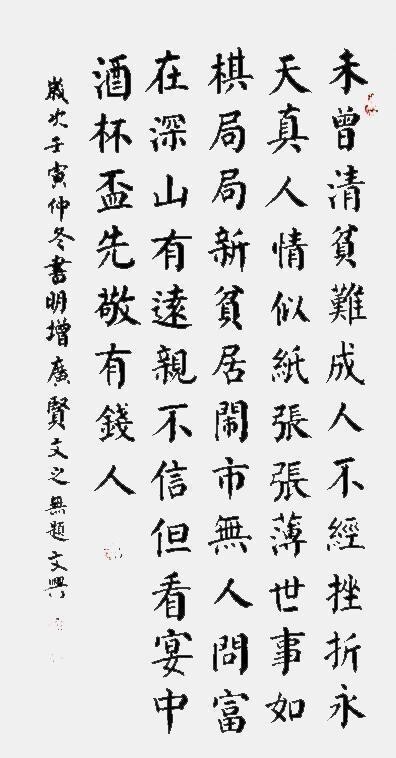 未曾清貧難成人不經挫折永
天真人情似紙張張薄世事如
棋局局新貧居鬧市無人問富
在深山有遠親不信但看宴中
酒杯盃先敬有錢人
歲次壬寅仲冬書明增廣賢文之無題文興